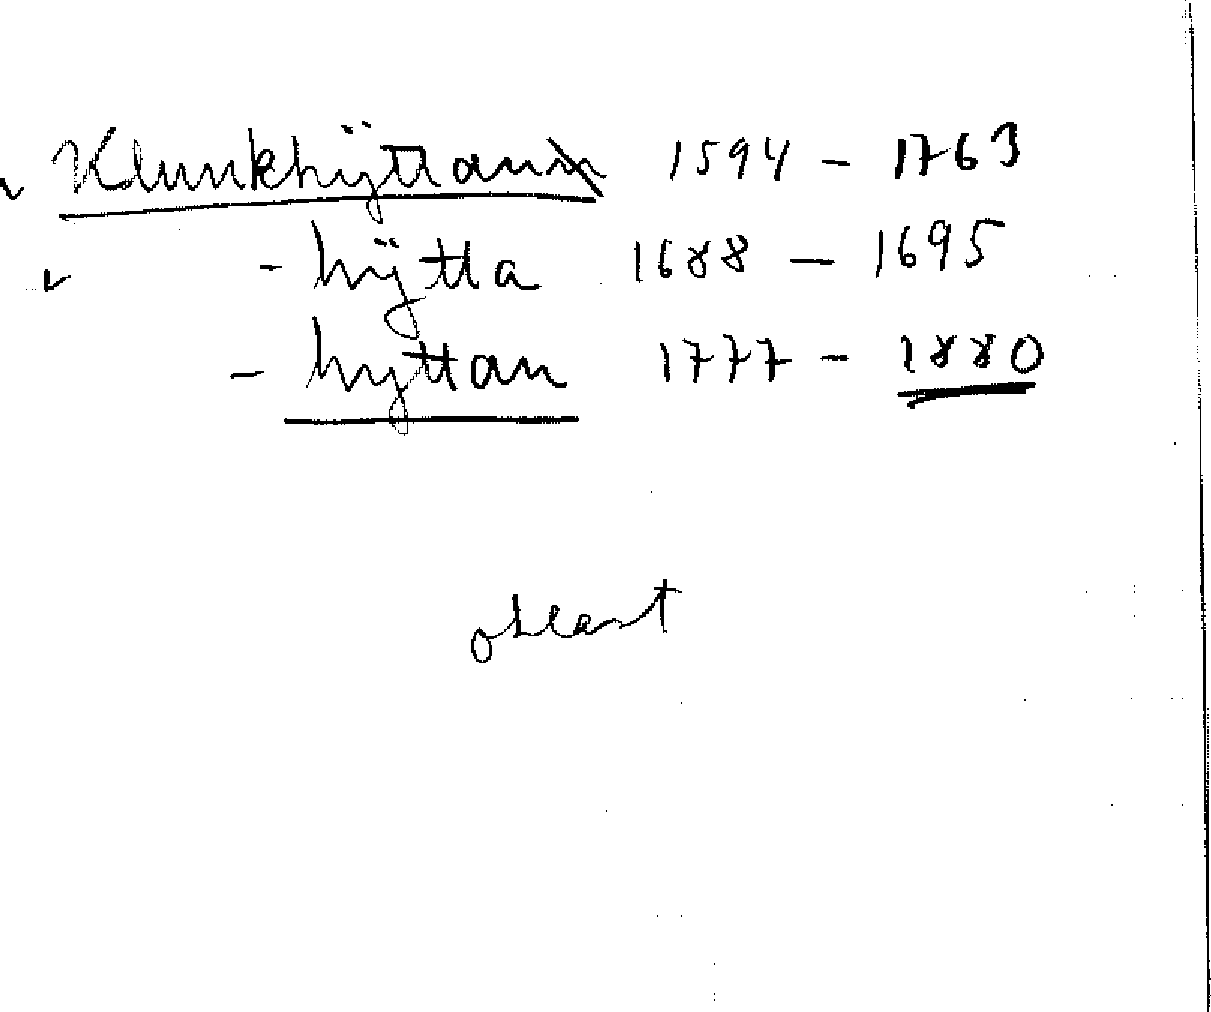 Klunkhÿttann 1594 – 1763
- hÿtta 1688 – 1695
- hyttan 1777 – 1880